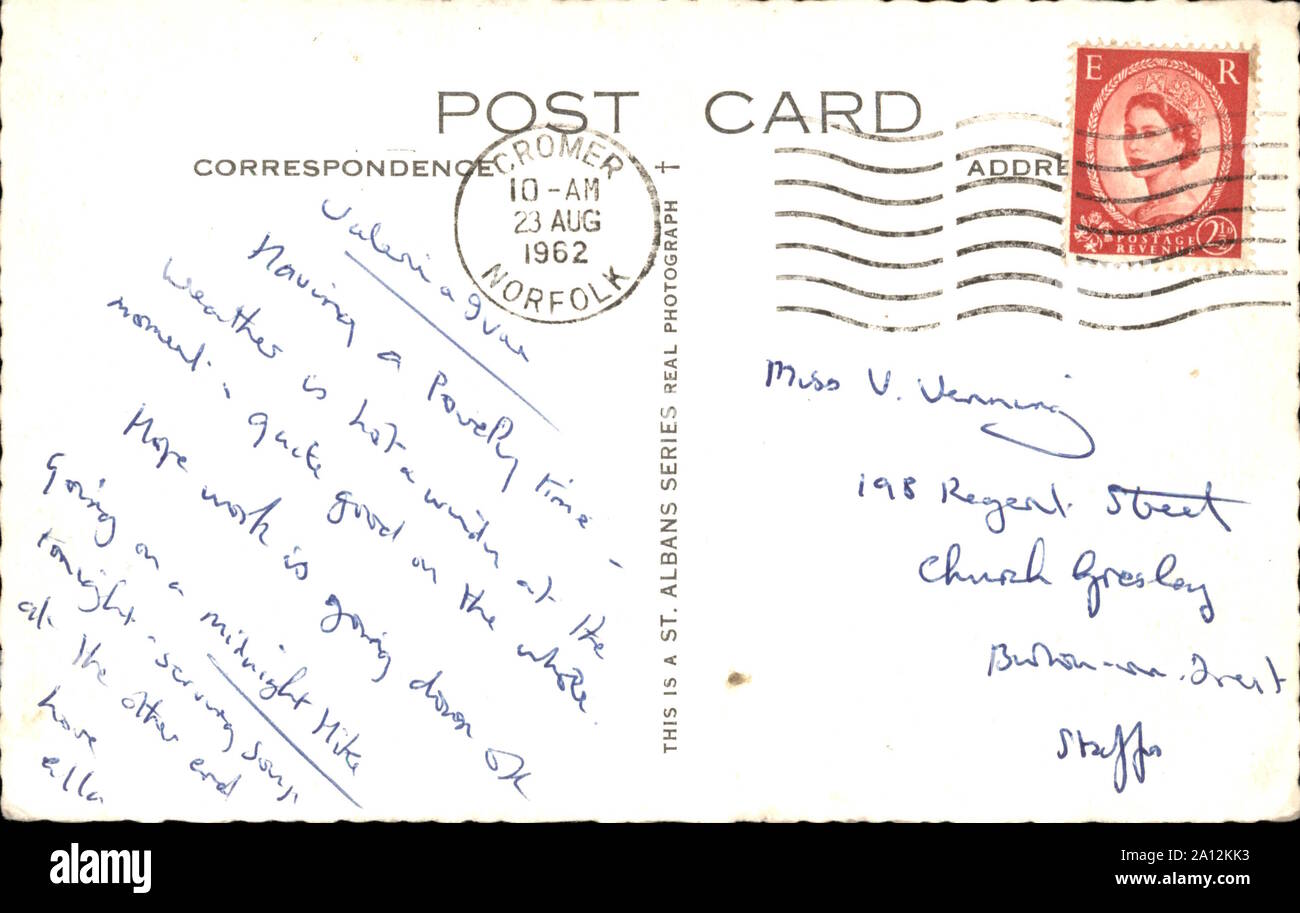 POST CARD
CORRESPONDENCE
ADDRE
CROMER
10-AM
23 AUG
1962
NORFOLK
E R
POSTAGE
REVENUE
2½D
THIS IS A ST. ALBANS SERIES REAL PHOTOGRAPH
Having a lovely time -
weather is hot & windy at the
moment - quite good on the whole.
Hope work is going down OK
Going on a midnight Hike
tonight - serving soup
at the other end
Love
ella
Miss V. Venning
198 Regent Street
Church Gresley
Burton-on-Trent
Staffs
alamy
Image ID: 2A12KK3
www.alamy.com